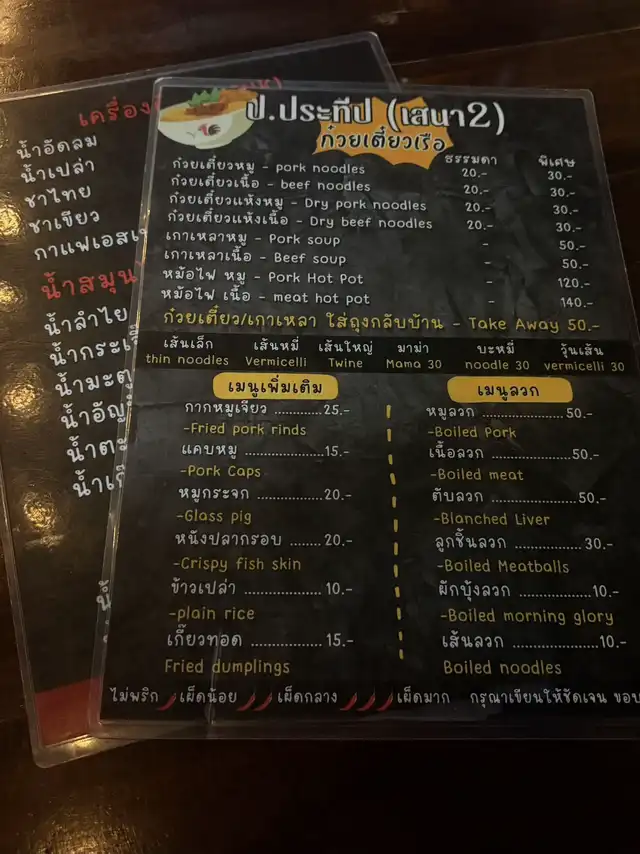 เครื่อง
น้ำอัดลม
น้ำเปล่า
ชาไทย
ชาเขียว
กาแฟเอสเ
น้ำสมุน
น้ำลำไย
น้ำกระเจี๊
น้ำมะตู
น้ำอัญ
น้ำตะ
น้ำเก๊
ป.ประทีป (เสนา2)
ก๋วยเตี๋ยวเรือ
ธรรมดา พิเศษ
ก๋วยเตี๋ยวหมู - pork noodles 20.- 30.-
ก๋วยเตี๋ยวเนื้อ - beef noodles 20.- 30.-
ก๋วยเตี๋ยวแห้งหมู - Dry pork noodles 20.- 30.-
ก๋วยเตี๋ยวแห้งเนื้อ - Dry beef noodles 20.- 30.-
เกาเหลาหมู - Pork soup - 50.-
เกาเหลาเนื้อ - Beef soup - 50.-
หม้อไฟ หมู - Pork Hot Pot - 120.-
หม้อไฟ เนื้อ - meat hot pot - 140.-
ก๋วยเตี๋ยว/เกาเหลา ใส่ถุงกลับบ้าน - Take Away 50.-
เส้นเล็ก เส้นหมี่ เส้นใหญ่ มาม่า บะหมี่ วุ้นเส้น
thin noodles Vermicelli Twine Mama 30 noodle 30 vermicelli 30
เมนูเพิ่มเติม
กากหมูเจียว ............25.-
-Fried pork rinds
แคบหมู ..................15.-
-Pork Caps
หมูกระจก ................20.-
-Glass pig
หนังปลากรอบ ........20.-
-Crispy fish skin
ข้าวเปล่า ................10.-
-plain rice
เกี๊ยวทอด ................15.-
Fried dumplings
เมนูลวก
หมูลวก ....................50.-
-Boiled Pork
เนื้อลวก ....................50.-
-Boiled meat
ตับลวก ....................50.-
-Blanched Liver
ลูกชิ้นลวก ................30.-
-Boiled Meatballs
ผักบุ้งลวก ................10.-
-Boiled morning glory
เส้นลวก ................10.-
Boiled noodles
ไม่พริก เผ็ดน้อย เผ็ดกลาง เผ็ดมาก กรุณาเขียนให้ชัดเจน ขอบ